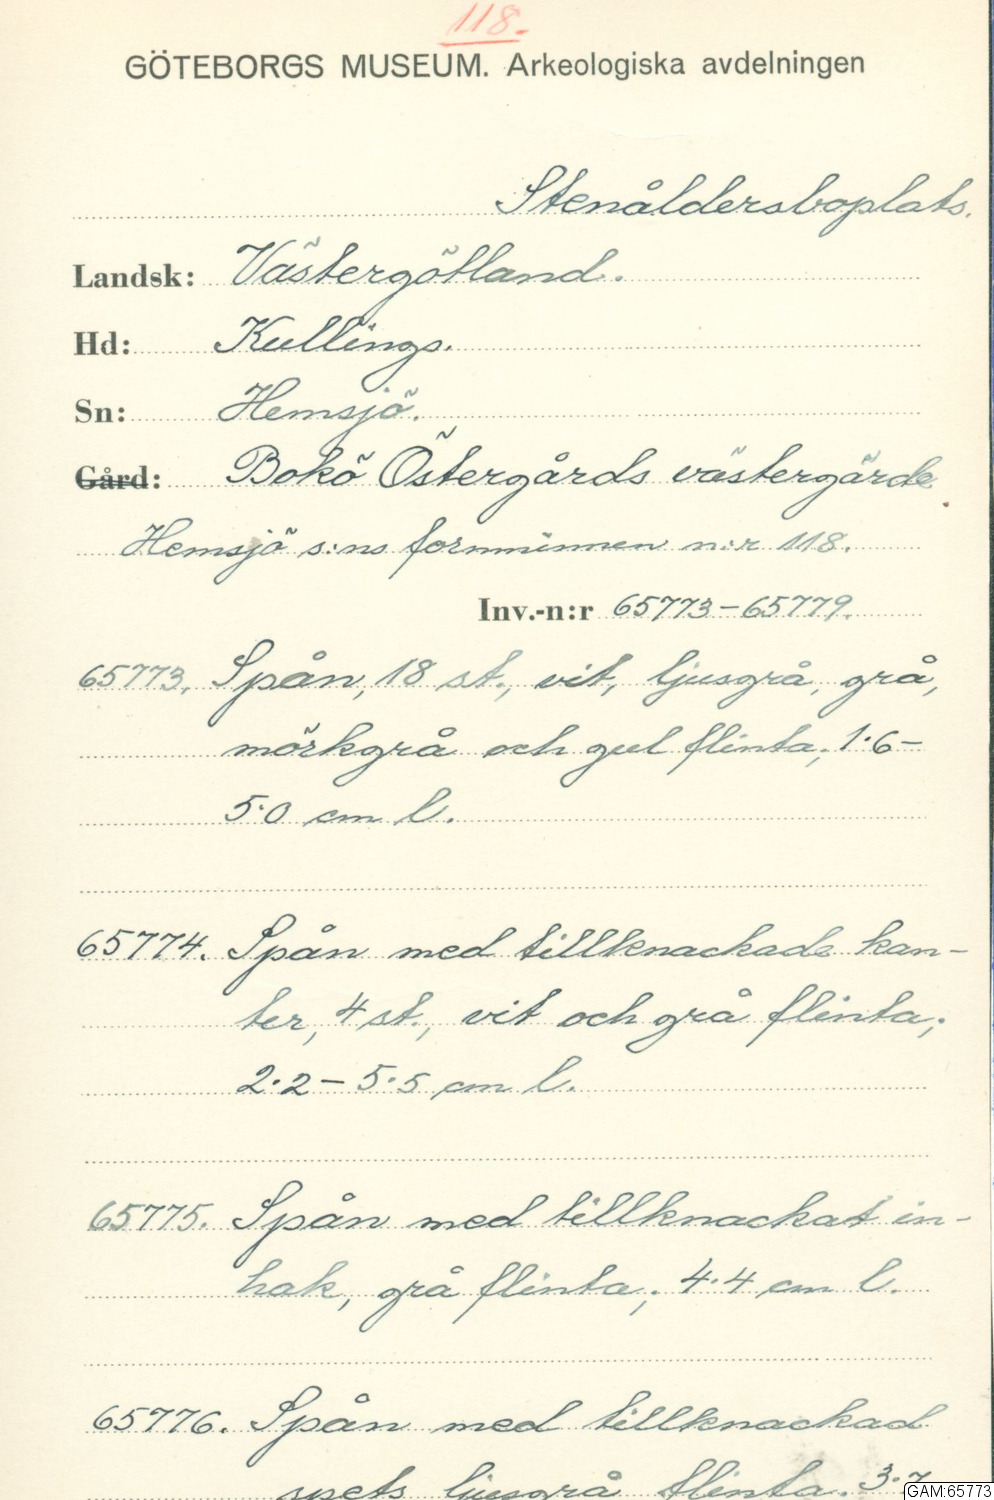 118.
GÖTEBORGS MUSEUM. Arkeologiska avdelningen
Stenåldersboplats.
Landsk: Västergötland.
Hd: Kullings.
Sn: Hemsjö.
Gård: Bokö Östergårds västergärde
Hemsjö s:ns fornminnen n:r 118.
Inv.-n:r 65773-65779.
65773. Spån, 18 st., vit, ljusgrå, grå,
mörkgrå och gul flinta; 1·6-
5·0 cm l.
65774. Spån med tillknackade kan-
ter, 4 st., vit och grå flinta;
2·2-5·5 cm l.
65775. Spån med tillknackat in-
hak, grå flinta; 4·4 cm l.
65776. Spån med tillknackad
spets ljusgrå flinta. 3·7
GAM:65773